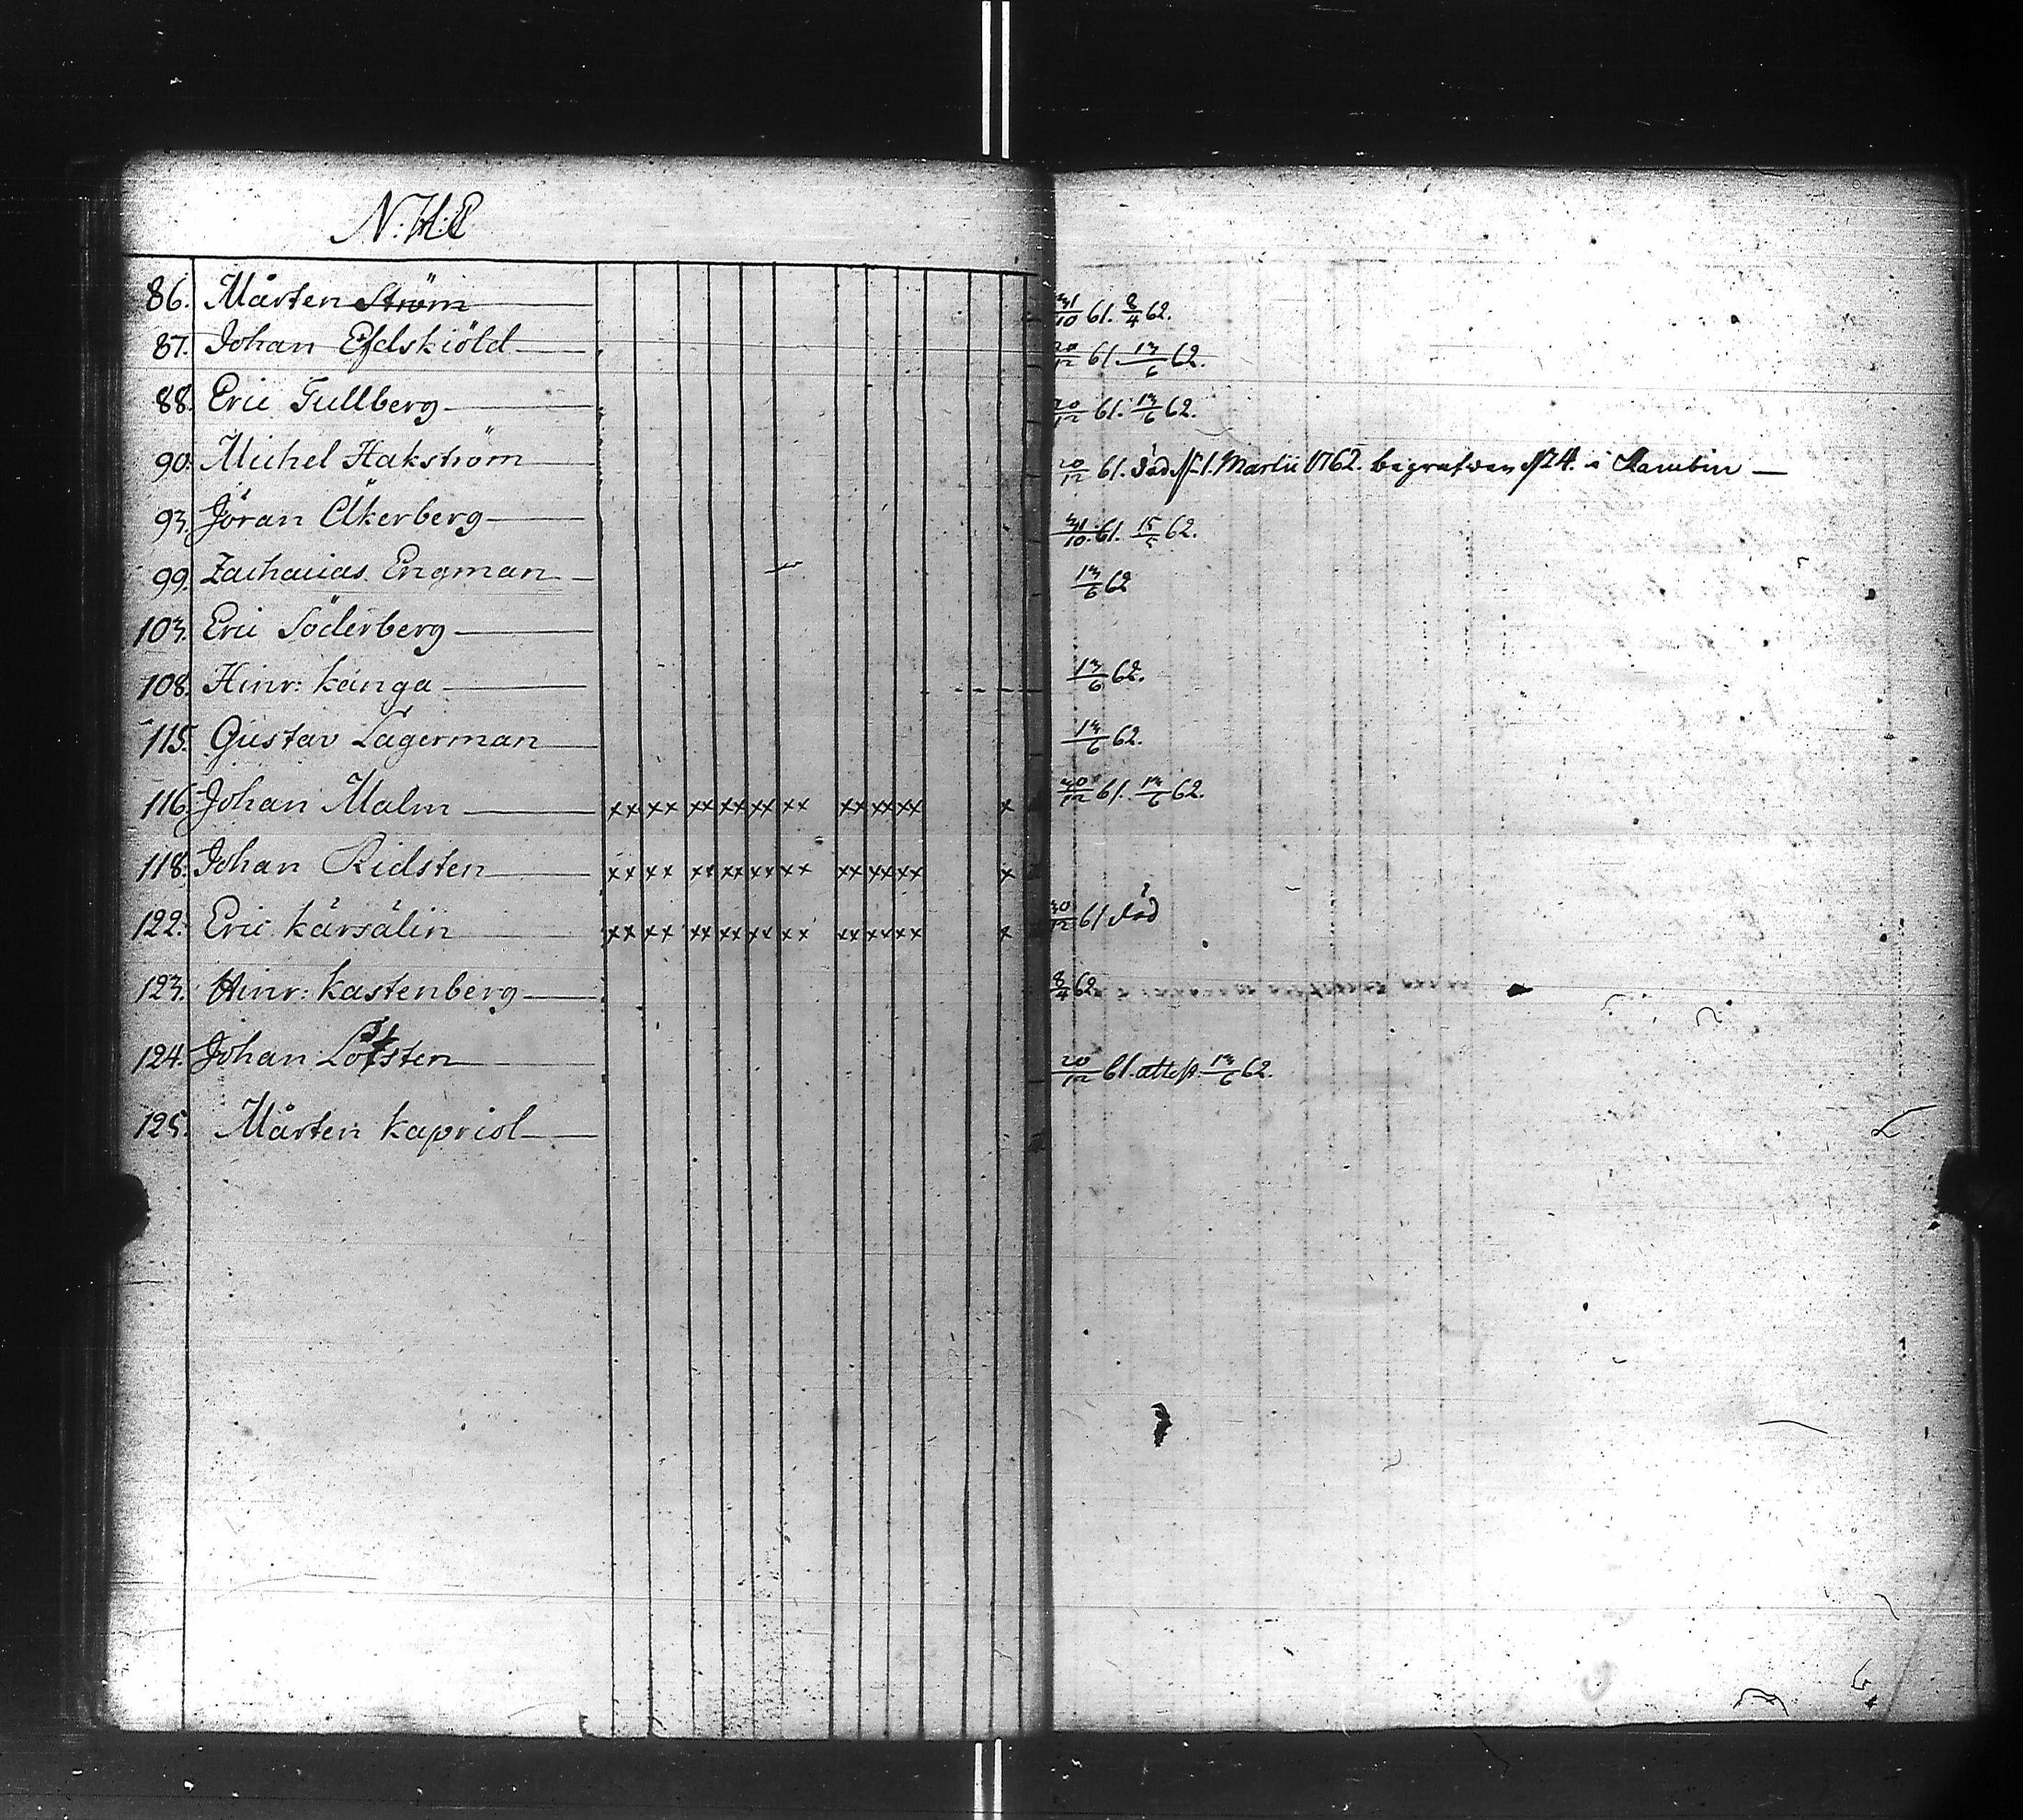 N:H:C
86. Mårten Ström 31/10 61. 8/4 62.
87. Johan Eldskiöld 20/12 61. 13/6 62.
88. Eric Tullberg 20/12 61. 13/6 62.
90. Michel Hakström 20/12 61. död d. 1. Martii 1762. begrafwen d 24. i Rambin
93. Jöran Åkerberg 31/10. 61. 15/5 62.
99. Zacharias Engman 13/6 62
103. Eric Söderberg
108. Hinr: Känga 13/6 62.
115. Gustav Lagerman 13/6 62.
116. Johan Malm xx xx xx xx xx xx xx xx xx x 20/12 61. 13/6 62.
118. Johan Ridsten xx xx xx xx xx xx xx xx xx x
122. Eric Kärsälin xx xx xx xx xx xx xx xx xx x 61 död
123. Hinr: Kastenberg 8/4 62
124. Johan Lotsten 20/12 61. attest. 13/6 62.
125. Mårten Kapriol